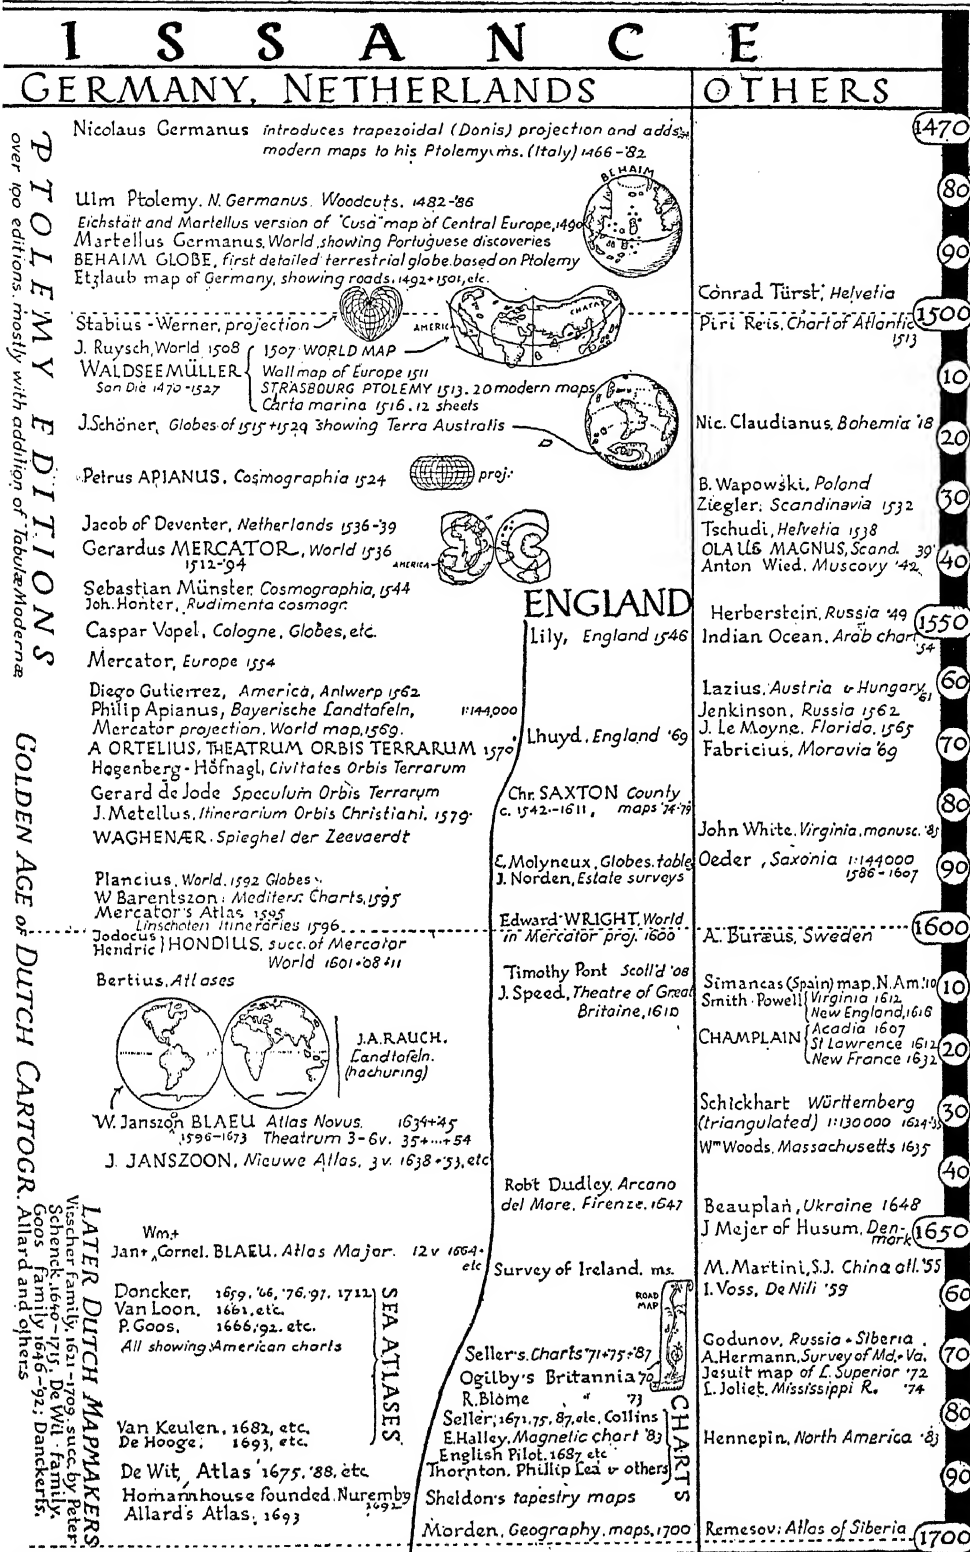 ISSANCE
GERMANY, NETHERLANDS
Nicolaus Germanus introduces trapezoidal (Donis) projection and adds
modern maps to his Ptolemy ms. (Italy) 1466-'82
BEHAIM
Ulm Ptolemy. N. Germanus. Woodcuts. 1482-'86
Eichstätt and Martellus version of "Cusa" map of Central Europe, 1490
Martellus Germanus, World, showing Portuguese discoveries
BEHAIM GLOBE, first detailed terrestrial globe. based on Ptolemy
Etzlaub map of Germany, showing roads, 1492+1501, etc.
Stabius-Werner, projection
AMERIC
CHATAY
J. Ruysch, World 1508
WALDSEEMÜLLER
San Dié 1470-1527
1507 WORLD MAP
Wall map of Europe 1511
STRASBOURG PTOLEMY 1513. 20 modern maps
Carta marina 1516. 12 sheets
J. Schöner, Globes of 1515+1529 showing Terra Australis
Petrus APIANUS. Cosmographia 1524
proj.
Jacob of Deventer, Netherlands 1536-'39
Gerardus MERCATOR, World 1536
1512-'94
AMERICA
Sebastian Münster, Cosmographia, 1544
Joh. Honter, Rudimenta cosmogr.
Caspar Vopel, Cologne, Globes, etc.
Mercator, Europe 1554
Diego Gutierrez, America, Antwerp 1562
Philip Apianus, Bayerische Landtafeln, 1:144,000
Mercator projection, World map, 1569.
A ORTELIUS, THEATRUM ORBIS TERRARUM 1570
Hogenberg-Höfnagl, Civitates Orbis Terrarum
Gerard de Jode Speculum Orbis Terrarum
J. Metellus, Itinerarium Orbis Christiani. 1579.
WAGHENÆR. Spieghel der Zeevaerdt
Plancius. World. 1592 Globes.
W Barentszon: Mediterr. Charts, 1595
Mercator's Atlas 1595
Linschoten Itineraries 1596
Jodocus
Hendric } HONDIUS, succ. of Mercator
World 1601+'08+11
Bertius, Atlases
J.A. RAUCH.
Landtafeln.
(hachuring)
W. Janszon BLAEU Atlas Novus. 1634+'45
1596-1673 Theatrum 3-6v. 35+...+54
J. JANSZOON, Nieuwe Atlas, 3 v. 1638+'53, etc
Wm.+
Jan+ Cornel. BLAEU, Atlas Major. 12 v 1664-
etc
Doncker, 1659, '66, '76, '97, 1712
Van Loon, 1661, etc.
P. Goos, 1666, '92. etc.
All showing American charts
SEA ATLASES
Van Keulen, 1682, etc
De Hooge; 1693, etc.
De Wit, Atlas 1675, '88, etc
Homannhouse founded. Nuremby
1692
Allard's Atlas, 1693
PTOLEMY EDITIONS
over 100 editions, mostly with addition of Tabulæ Modernæ
GOLDEN AGE OF DUTCH CARTOGR.
LATER DUTCH MAPMAKERS
Visscher family, 1621-1709, succ. by Peter
Schenck, 1640-1715, De Wit family,
Goos family 1646-'92; Danckerts,
Allard and others
ENGLAND
Lily, England 1546
Lhuyd, England '69
Chr. SAXTON County
c. 1542-1611, maps '74-'79
E. Molyneux, Globes. table
J. Norden, Estate surveys
Edward WRIGHT, World
in Mercator proj. 1600
Timothy Pont Scotl'd '08
J. Speed, Theatre of Great
Britaine, 1610
Robt Dudley, Arcano
del Mare, Firenze. 1647
Survey of Ireland. ms.
ROAD
MAP
Seller's. Charts '71+75+'87
Ogilby's Britannia 70
R. Blome " '73
Seller, 1671, 75, 87, etc, Collins
E. Halley, Magnetic chart '83
English Pilot. 1687 etc
Thornton, Phillip Lea & others
CHARTS
Sheldon's tapestry maps
Morden, Geography, maps, 1700
OTHERS
Conrad Türst, Helvetia
Piri Reis, Chart of Atlantic
1513
Nic. Claudianus, Bohemia '18
B. Wapowski, Poland
Ziegler, Scandinavia 1532
Tschudi, Helvetia 1538
OLAUS MAGNUS, Scand. 39'
Anton Wied, Muscovy '42
Herberstein, Russia '49
Indian Ocean, Arab chart
'54
Lazius, Austria & Hungary,
61
Jenkinson, Russia 1562
J. Le Moyne, Florida, 1565
Fabricius, Moravia '69
John White, Virginia, manusc. '85
Oeder, Saxonia 1:144000
1586-1607
A. Buræus, Sweden
Simancas (Spain) map, N. Am. '10
Smith-Powell { Virginia 1612
New England, 1616
CHAMPLAIN { Acadia 1607
St Lawrence 1612
New France 1632
Schickhart Württemberg
(triangulated) 1:130000 1624-'35
Wm Woods, Massachusetts 1635
Beauplan, Ukraine 1648
J Mejer of Husum, Den-
mark
M. Martini, S.J. China atl. '55
I. Voss, De Nili '59
Godunov, Russia + Siberia
A. Hermann, Survey of Md. + Va.
Jesuit map of L. Superior '72
L. Joliet, Mississippi R. '74
Hennepin, North America '83
Remesov: Atlas of Siberia
1470
80
90
1500
10
20
30
40
1550
60
70
80
90
1600
10
20
30
40
1650
60
70
80
90
1700